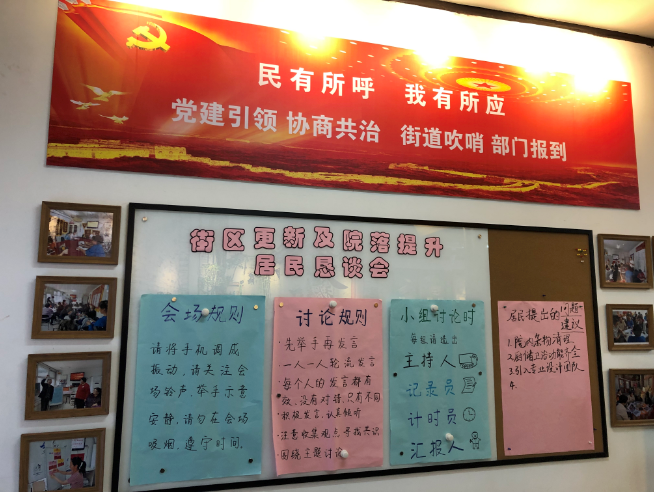 民有所呼 我有所应
党建引领 协商共治 街道吹哨 部门报到
街区更新及院落提升
居民恳谈会
会场规则
请将手机调成
振动,请关注会
场铃声,举手示意
安静,请勿在会场
吸烟,遵守时间.
讨论规则
·先举手再发言
·一人一人轮流发言
·每个人的发言都有
效,没有对错,只有不同
·积极发言,认真倾听
·注意收集观点寻找共识
·围绕主题讨论
小组讨论时
每组请选出
主持人
记录员
计时员
汇报人
居民提出的问题
建议
1.院内杂物清理
2.厨储卫浴功能齐全
3.引入专业设计团队
4.